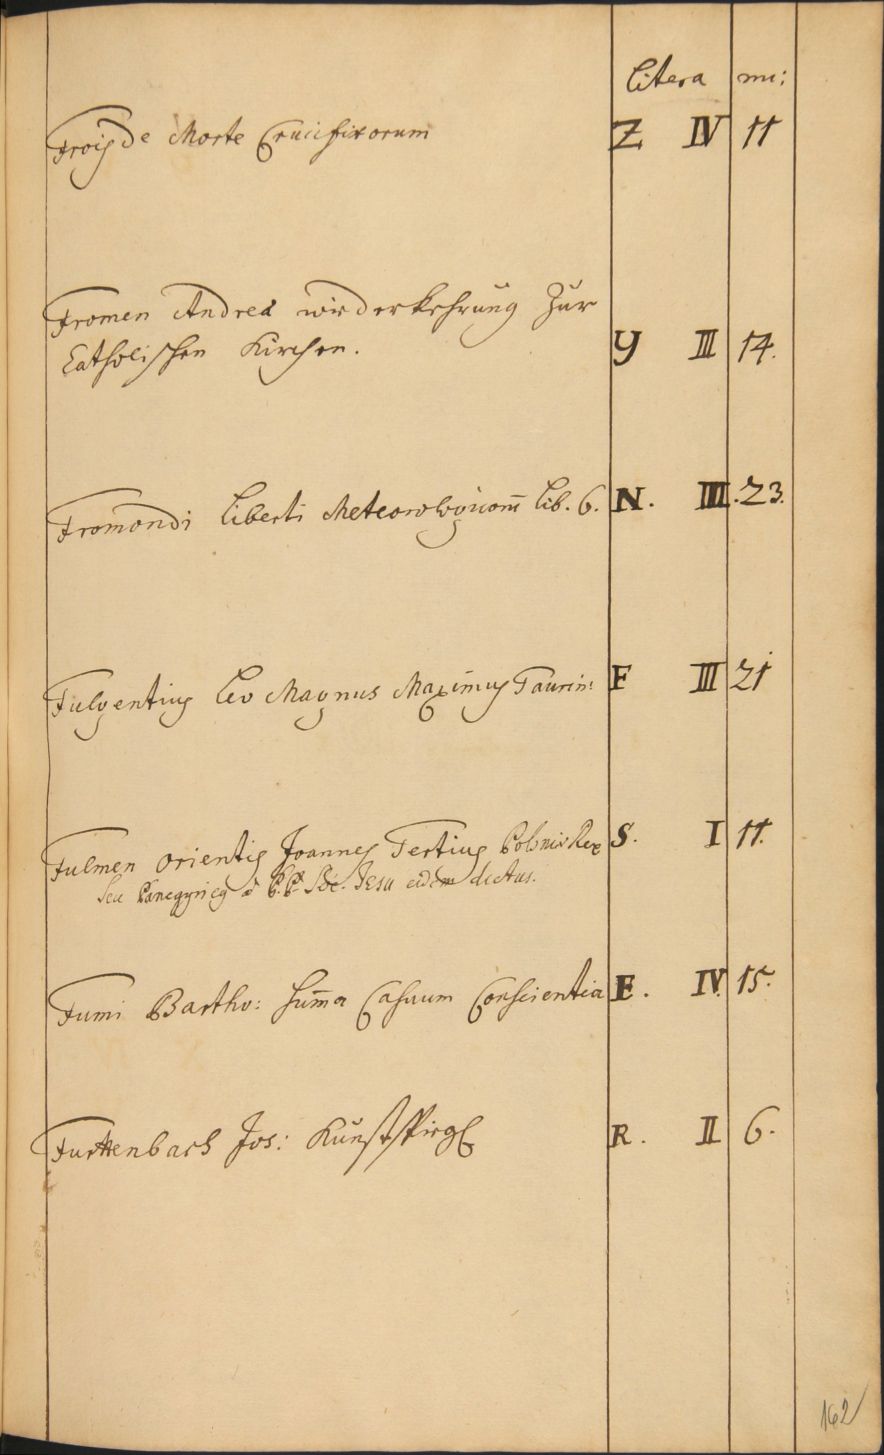 litera nu:
Frois de Morte Crucifixorum Z IV 11
Fromen Andreä wiederkehrung Zur
Catholischen Kirchen. Y III 14.
Fromondi Liberti Meteorologicom̄ lib. 6. N. III. 23.
Fulgentius Leo Magnus Maximus Taurin: F III 21
Fulmen orientis Joannes Tertius Poloniæ Rex S. I 11.
seu Panegyricus à P.P. Soc. Jesu eidem dictus.
Fumi Bartho: sum̄a Casuum Conscientia E. IV. 15.
Furttenbach Jos: Kunstspiegel R. II 6.
162